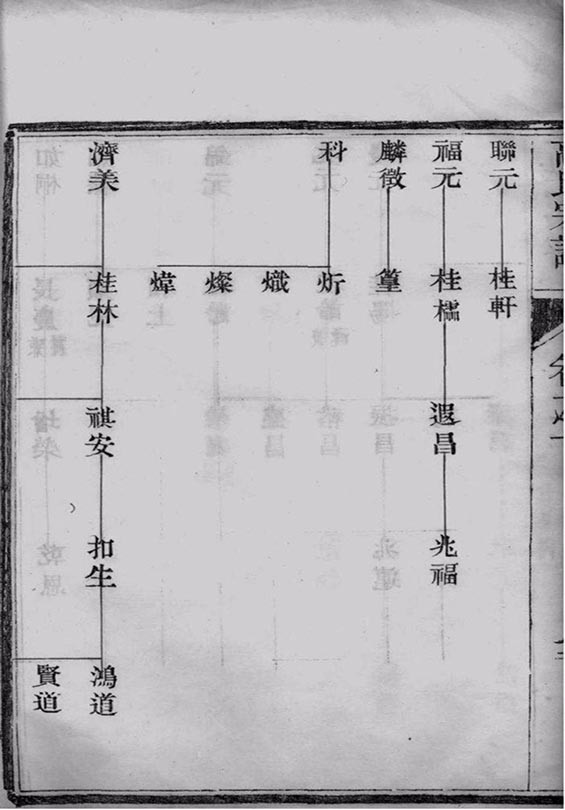 高氏宗譜
聯元 桂軒
福元 桂 遐昌 兆福
麟徵 篁
科 炘
熾
燦
煒
濟美 桂林 祺安 扣生 鴻道
賢道